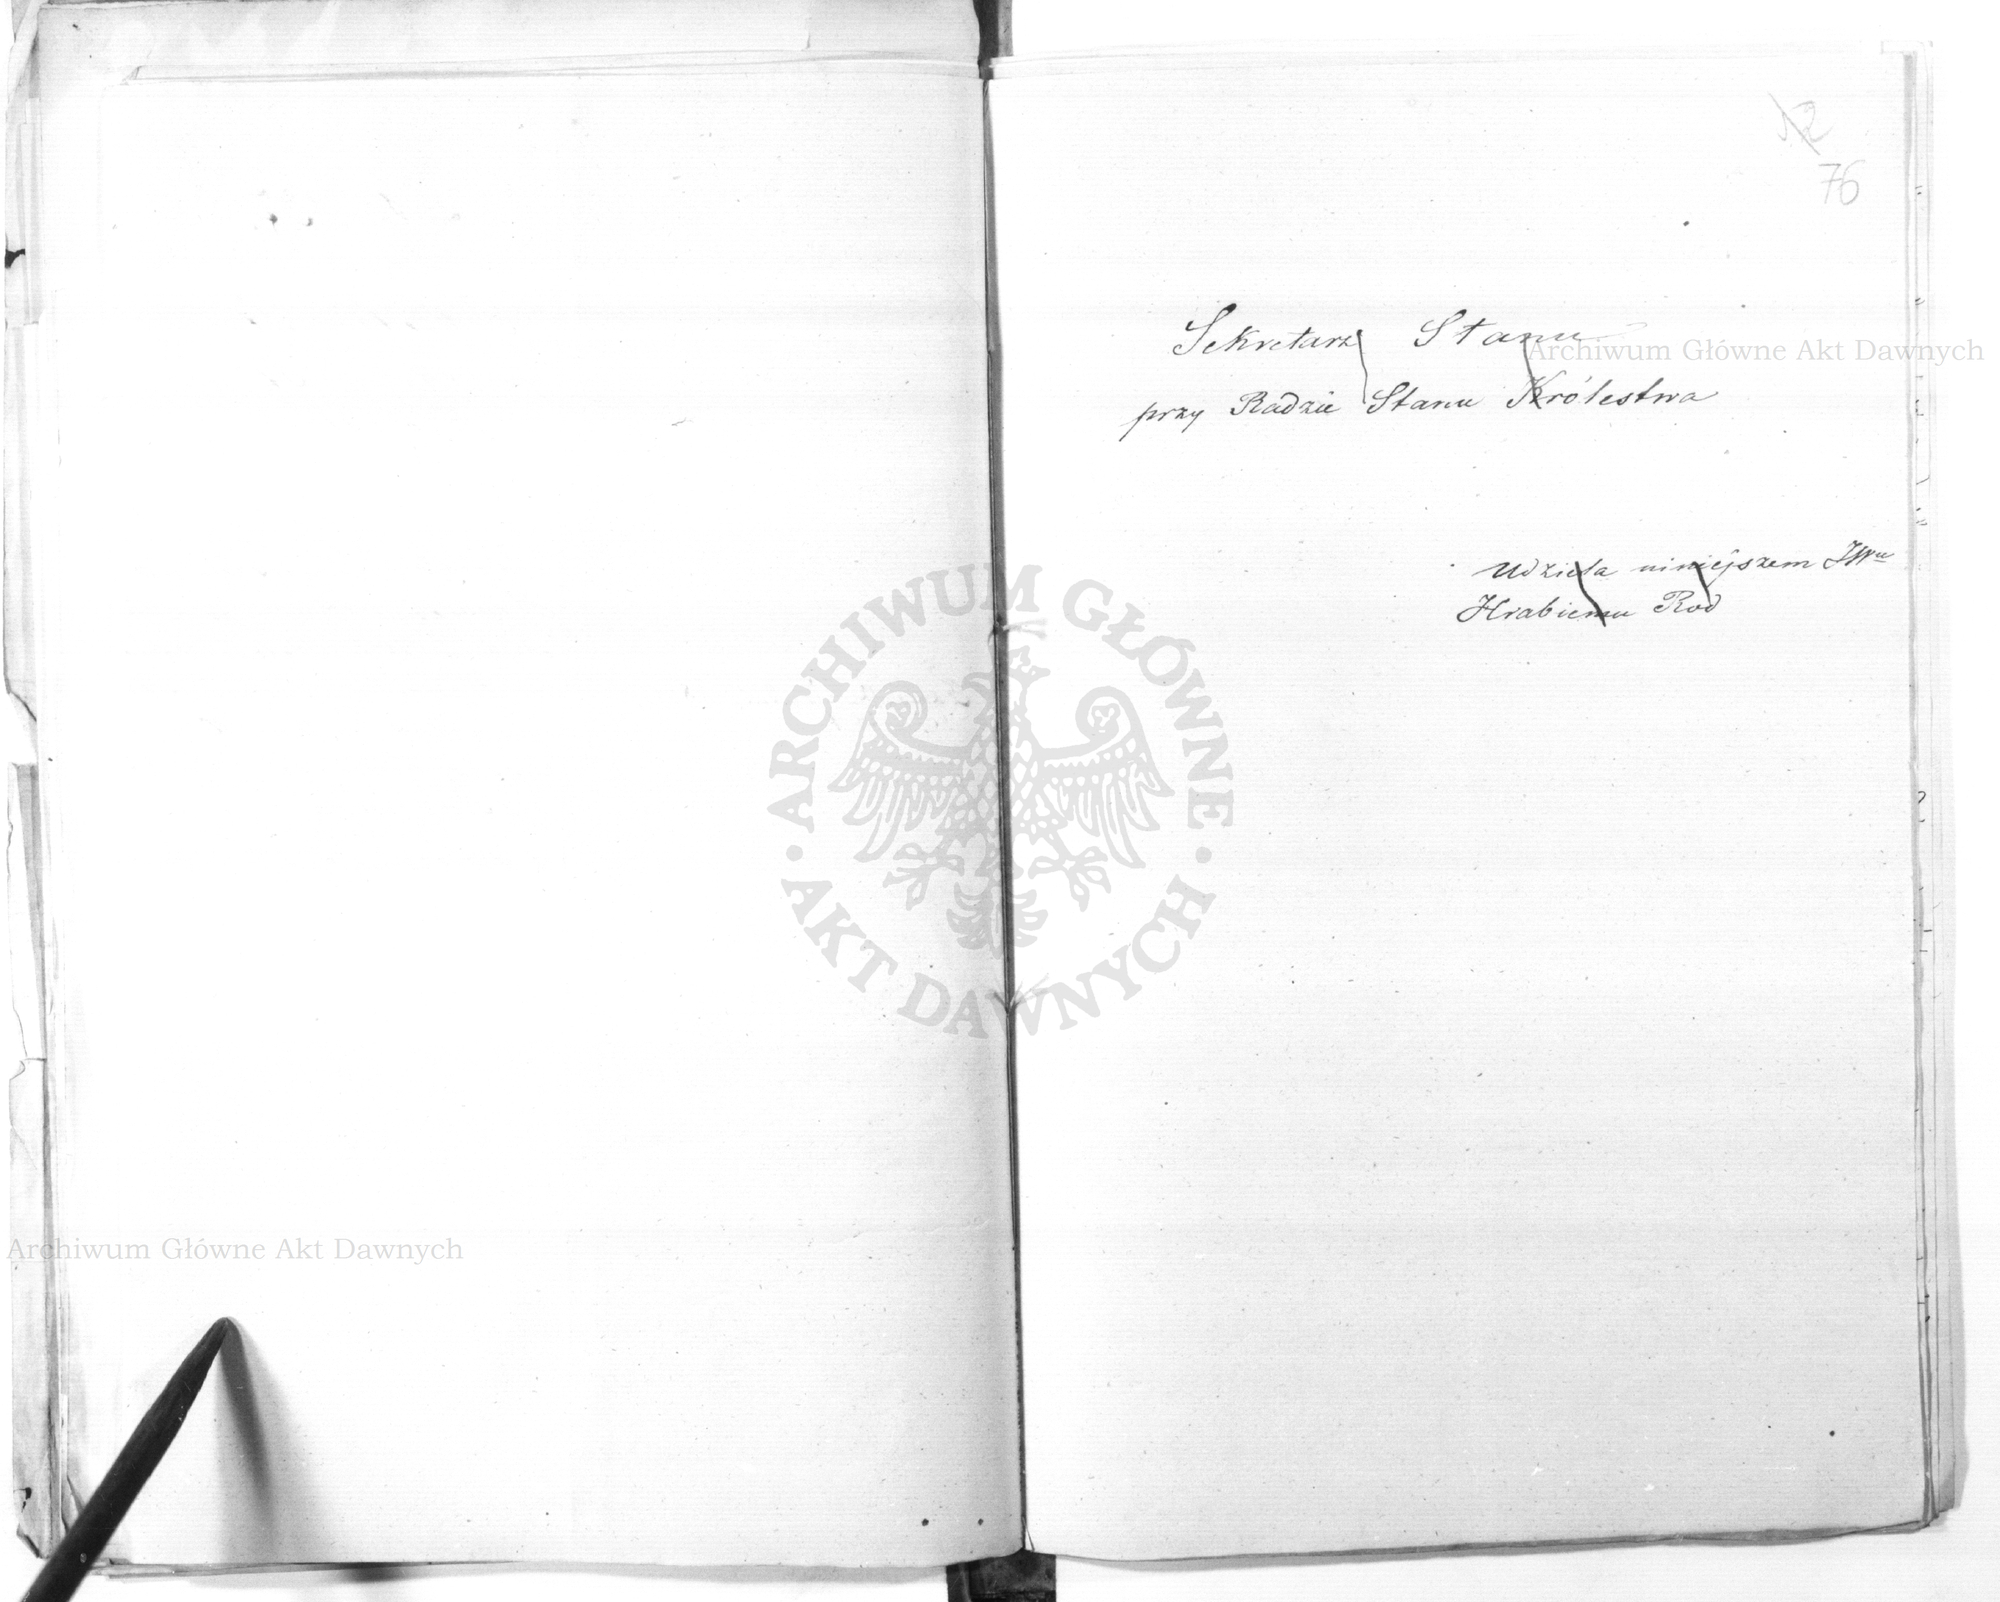 12
76
Sekretarz Stanu
przy Radzie Stanu Królestwa
Udziela niniejszem JWu
Hrabiemu Rod
Archiwum Główne Akt Dawnych
ARCHIWUM GŁÓWNE
AKT DAWNYCH
Archiwum Główne Akt Dawnych